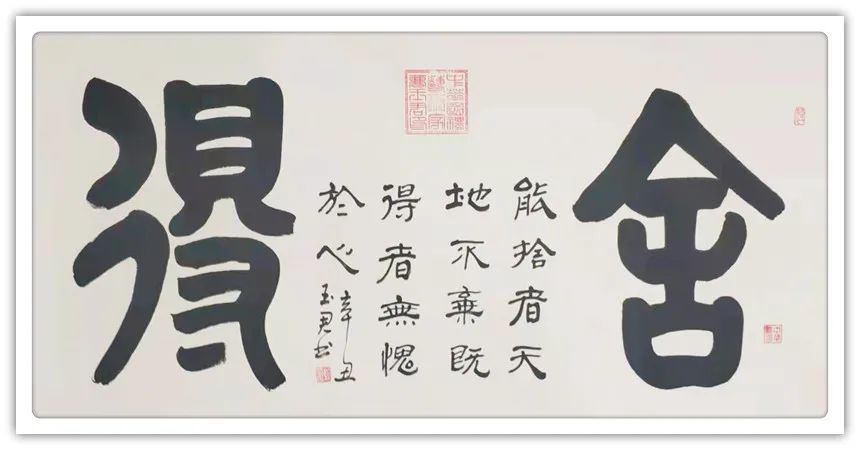 舍
能捨者天
地不棄既
得者無愧
於心
辛丑
玉君书
得